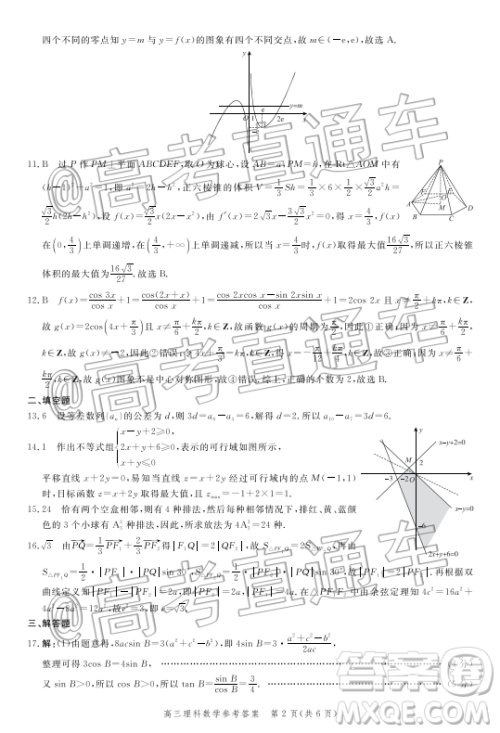 四个不同的零点知 y=m 与 y=f(x)的图象有四个不同交点，故 m∈(−e,e)，故选 A.
y
O 1 e 2e x
11. B 过 P 作 PM⊥平面 ABCDEF，取 O 为球心，设 AB=a，PM=h，在 Rt△AOM 中有
(h−1)²+a²=1，即 a²=2h−h²，正六棱锥的体积 V=1/3 Sh=1/3×6×1/2×√3/2 a²h=
√3/2 h(2h−h²)，设 f(x)=√3/2 x(2x−x²)，由 f′(x)=2√3x−3√3/2 x²=0，得 x=4/3，f(x)
在(0,4/3)上单调递增，在(4/3,+∞)上单调递减，所以当 x=4/3时，f(x)取得最大值16√3/27，所以正六棱锥
体积的最大值为16√3/27.故选 B.
P A B C D E F M
12. B f(x)=cos 3x/cos x+1=cos(2x+x)/cos x+1=cos 2xcos x−sin 2xsin x/cos x+1=2cos 2x 且 x≠π/2+kπ，k∈Z，
故 g(x)=2cos(4x+π/3)且 x≠π/6+kπ/2，k∈Z，故函数 g(x)的周期为π/2，因此①正确，因为 x≠π/6+kπ/2，
k∈Z，故 g(x)≠−2，因此②错误
kπ/2，k∈Z，故 g(x)图象不是中心对称图形，故④错误，综上，正确的个数为 2，故选 B.
二、填空题
13. 6 设等差数列{aₙ}的公差为 d，则 3d=a₆−a₃=6，解得 d=2. 所以 a₁₀−a₇=3d=6.
14. 1 作出不等式组{x−y+2≥0, 2x+y+6≥0, x+y≤0 表示的可行域如图所示，
平移直线 x+2y=0，易知当直线 z=x+2y 经过可行域内的点 M(−1,1)
时，目标函数 z=x+2y 取得最大值，且 zmax=−1+2×1=1.
y x−y+2=0 M 2 −3 −2 O x −6 2x+y+6=0
15. 24 恰有两个空盒相邻，则有 4 种排法，然后每种相邻情况下，排红、黄、蓝颜
色的 3 个小球有 A₃³ 种排法，因此，所求放法为 4A₃³=24 种.
16. √3 由PQ=1/3 PF₁+2/3 PF₂得|F₁Q|=2|QF₂|，故
曲线定义知|PF₁|−|PF₂|=2a，即|PF₂|=2a，|PF₁|=4a，在△PF₁F₂ 中由余弦定理知 4c²=16a²+
4a²−8a²=12a²，故 e²=3，即 e=√3.
三、解答题
17. 解：(1)由题意得，8acsin B=3(a²+c²−b²)，即 4sin B=3·a²+c²−b²/2ac，
整理可得 3cos B=4sin B，
又 sin B>0，所以 cos B>0，所以 tan B=sin B/cos B=3/4.
高三理科数学参考答案 第 2 页(共 6 页)
@高考直通车
@高考直通车
@高考直通车